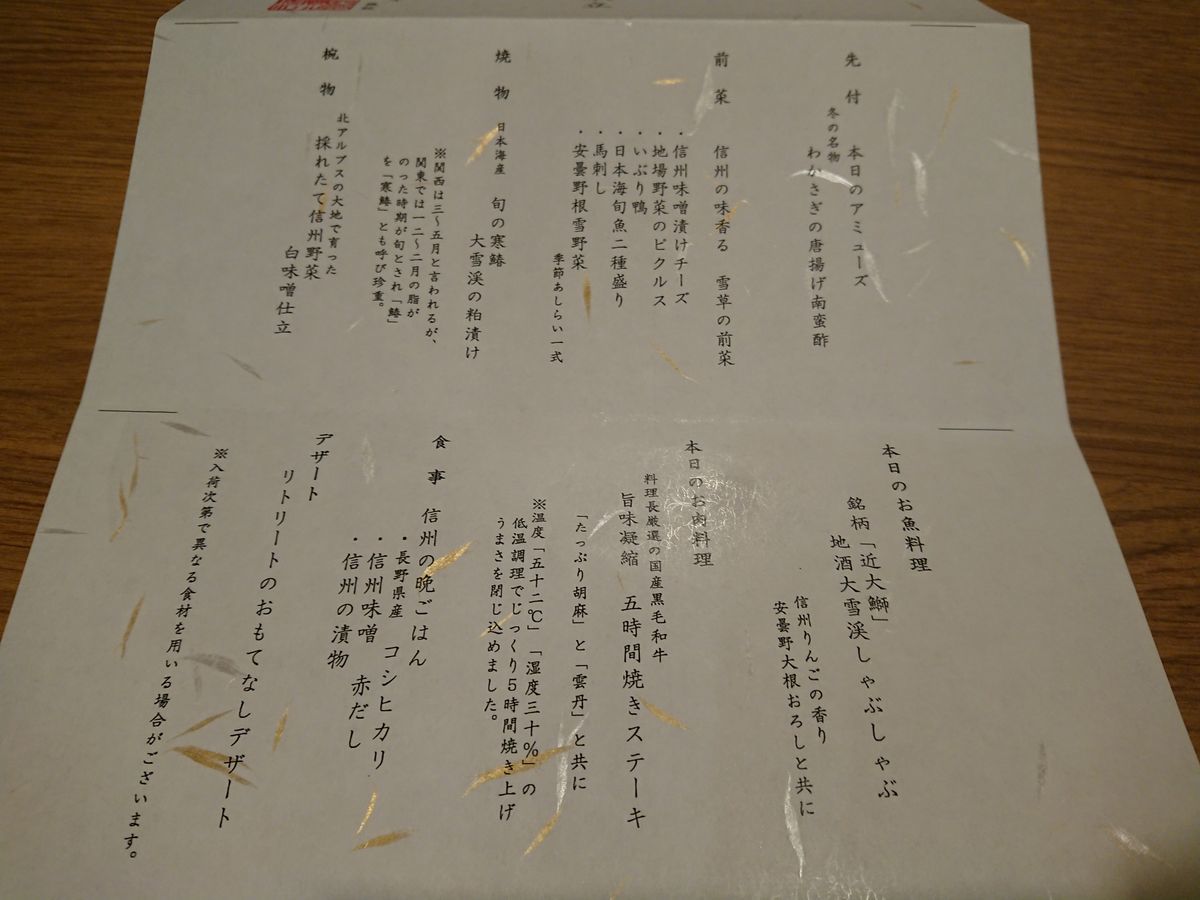 先付
本日のアミューズ
冬の名物
わかさぎの唐揚げ南蛮酢
前菜 信州の味香る 雪草の前菜
・信州味噌漬けチーズ
・地場野菜のピクルス
・いぶり鴨
・日本海旬魚二種盛り
・馬刺し
・安曇野根雪野菜
季節あしらい一式
焼物 日本海産 旬の寒鰆
大雪渓の粕漬け
※関西は三～五月と言われるが、
関東では一二～二月の脂が
のった時期が旬とされ「鰆」
を「寒鰆」とも呼び珍重。
椀物
北アルプスの大地で育った
採れたて信州野菜
白味噌仕立
本日のお魚料理
銘柄「近大鰤」
地酒大雪渓しゃぶしゃぶ
信州りんごの香り
安曇野大根おろしと共に
本日のお肉料理
料理長厳選の国産黒毛和牛
旨味凝縮 五時間焼きステーキ
「たっぷり胡麻」と「雲丹」と共に
※温度「五十二℃」「湿度三十%」の
低温調理でじっくり5時間焼き上げ
うまさを閉じ込めました。
食事 信州の晩ごはん
・長野県産 コシヒカリ
・信州味噌 赤だし
・信州の漬物
デザート
リトリートのおもてなしデザート
※入荷次第で異なる食材を用いる場合がございます。